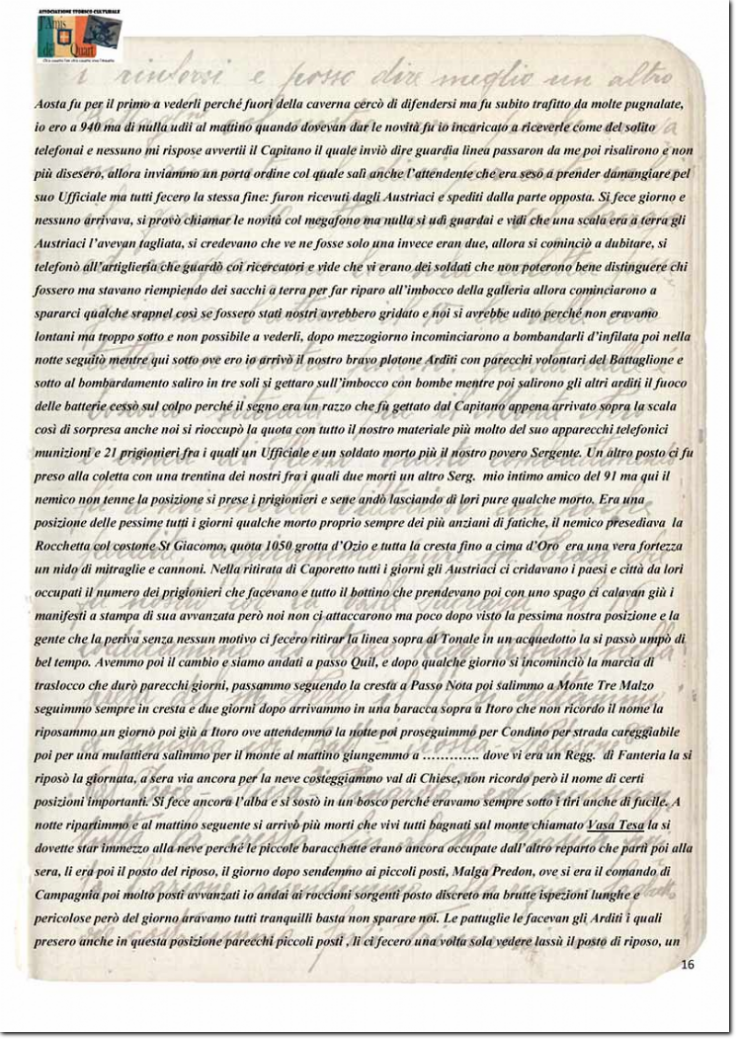 ASSOCIAZIONE STORICO CULTURALE
l'Amis
del Quart
i rinforsi e posso dire meglio un altro
Aosta fu per il primo a vederli perché fuori della caverna cercò di difendersi ma fu subito trafitto da molte pugnalate,
io ero a 940 ma di nulla udii al mattino quando dovevan dar le novità fu io incaricato a riceverle come del solito
telefonai e nessuno mi rispose avvertii il Capitano il quale inviò dire guardia linea passaron da me poi risalirono e non
più disesero, allora inviammo un porta ordine col quale salì anche l'attendente che era seso a prender damangiare pel
suo Ufficiale ma tutti fecero la stessa fine: furon ricevuti dagli Austriaci e spediti dalla parte opposta. Si fece giorno e
nessuno arrivava, si provò chiamar le novità col megafono ma nulla si udì guardai e vidi che una scala era a terra gli
Austriaci l'avevan tagliata, si credevano che ve ne fosse solo una invece eran due, allora si cominciò a dubitare, si
telefonò all'artiglieria che guardò coi ricercatori e vide che vi erano dei soldati che non poterono bene distinguere chi
fossero ma stavano riempiendo dei sacchi a terra per far riparo all'imbocco della galleria allora cominciarono a
spararci qualche srapnel così se fossero stati nostri avrebbero gridato e noi si avrebbe udito perché non eravamo
lontani ma troppo sotto e non possibile a vederli, dopo mezzogiorno incominciarono a bombandarli d'infilata poi nella
notte seguitò mentre qui sotto ove ero io arrivò il nostro bravo plotone Arditi con parecchi volontari del Battaglione e
sotto al bombardamento saliro in tre soli si gettaro sull'imbocco con bombe mentre poi salirono gli altri arditi il fuoco
delle batterie cessò sul colpo perché il segno era un razzo che fù gettato dal Capitano appena arrivato sopra la scala
così di sorpresa anche noi si rioccupò la quota con tutto il nostro materiale più molto del suo apparecchi telefonici
munizioni e 21 prigionieri fra i quali un Ufficiale e un soldato morto più il nostro povero Sergente. Un altro posto ci fu
preso alla coletta con una trentina dei nostri fra i quali due morti un altro Serg. mio intimo amico del 91 ma qui il
nemico non tenne la posizione si prese i prigionieri e sene andò lasciando di lori pure qualche morto. Era una
posizione delle pessime tutti i giorni qualche morto proprio sempre dei più anziani di fatiche, il nemico presediava la
Rocchetta col costone St Giacomo, quota 1050 grotta d'Ozio e tutta la cresta fino a cima d'Oro era una vera fortezza
un nido di mitraglie e cannoni. Nella ritirata di Caporetto tutti i giorni gli Austriaci ci cridavano i paesi e città da lori
occupati il numero dei prigionieri che facevano e tutto il bottino che prendevano poi con uno spago ci calavan giù i
manifesti a stampa di sua avvanzata però noi non ci attaccarono ma poco dopo visto la pessima nostra posizione e la
gente che la periva senza nessun motivo ci fecero ritirar la linea sopra al Tonale in un acquedotto la si passò umpò di
bel tempo. Avemmo poi il cambio e siamo andati a passo Quil, e dopo qualche giorno si incominciò la marcia di
traslocco che durò parecchi giorni, passammo seguendo la cresta a Passo Nota poi salimmo a Monte Tre Malzo
seguimmo sempre in cresta e due giorni dopo arrivammo in una baracca sopra a Itoro che non ricordo il nome la
riposammo un giorno poi giù a Itoro ove attendemmo la notte poi proseguimmo per Condino per strada careggiabile
poi per una mulattiera salimmo per il monte al mattino giungemmo a …………. dove vi era un Regg. di Fanteria la si
riposò la giornata, a sera via ancora per la neve costeggiammo val di Chiese, non ricordo però il nome di certi
posizioni importanti. Si fece ancora l'alba e si sostò in un bosco perché eravamo sempre sotto i tiri anche di fucile. A
notte ripartimmo e al mattino seguente si arrivò più morti che vivi tutti bagnati sul monte chiamato Vasa Tesa la si
dovette star immezzo alla neve perché le piccole baracchette erano ancora occupate dall'altro reparto che partì poi alla
sera, li era poi il posto del riposo, il giorno dopo sendemmo ai piccoli posti, Malga Predon, ove si era il comando di
Campagnia poi molto posti avvanzati io andai ai roccioni sorgenti posto discreto ma brutte ispezioni lunghe e
pericolose però del giorno aravamo tutti tranquilli basta non sparare noi. Le pattuglie le facevan gli Arditi i quali
presero anche in questa posizione parecchi piccoli posti , li ci fecero una volta sola vedere lassù il posto di riposo, un
16